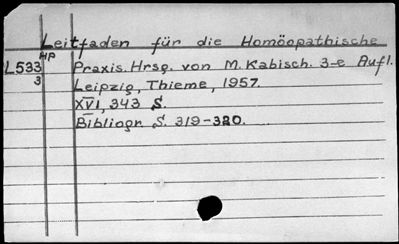 Leitfaden für die Homöopathische
HP
L533 Praxis. Hrsg. von M. Kabisch. 3-e Aufl.
3
Leipzig, Thieme, 1957.
XVI, 343 S.
Bibliogr S. 319-320.